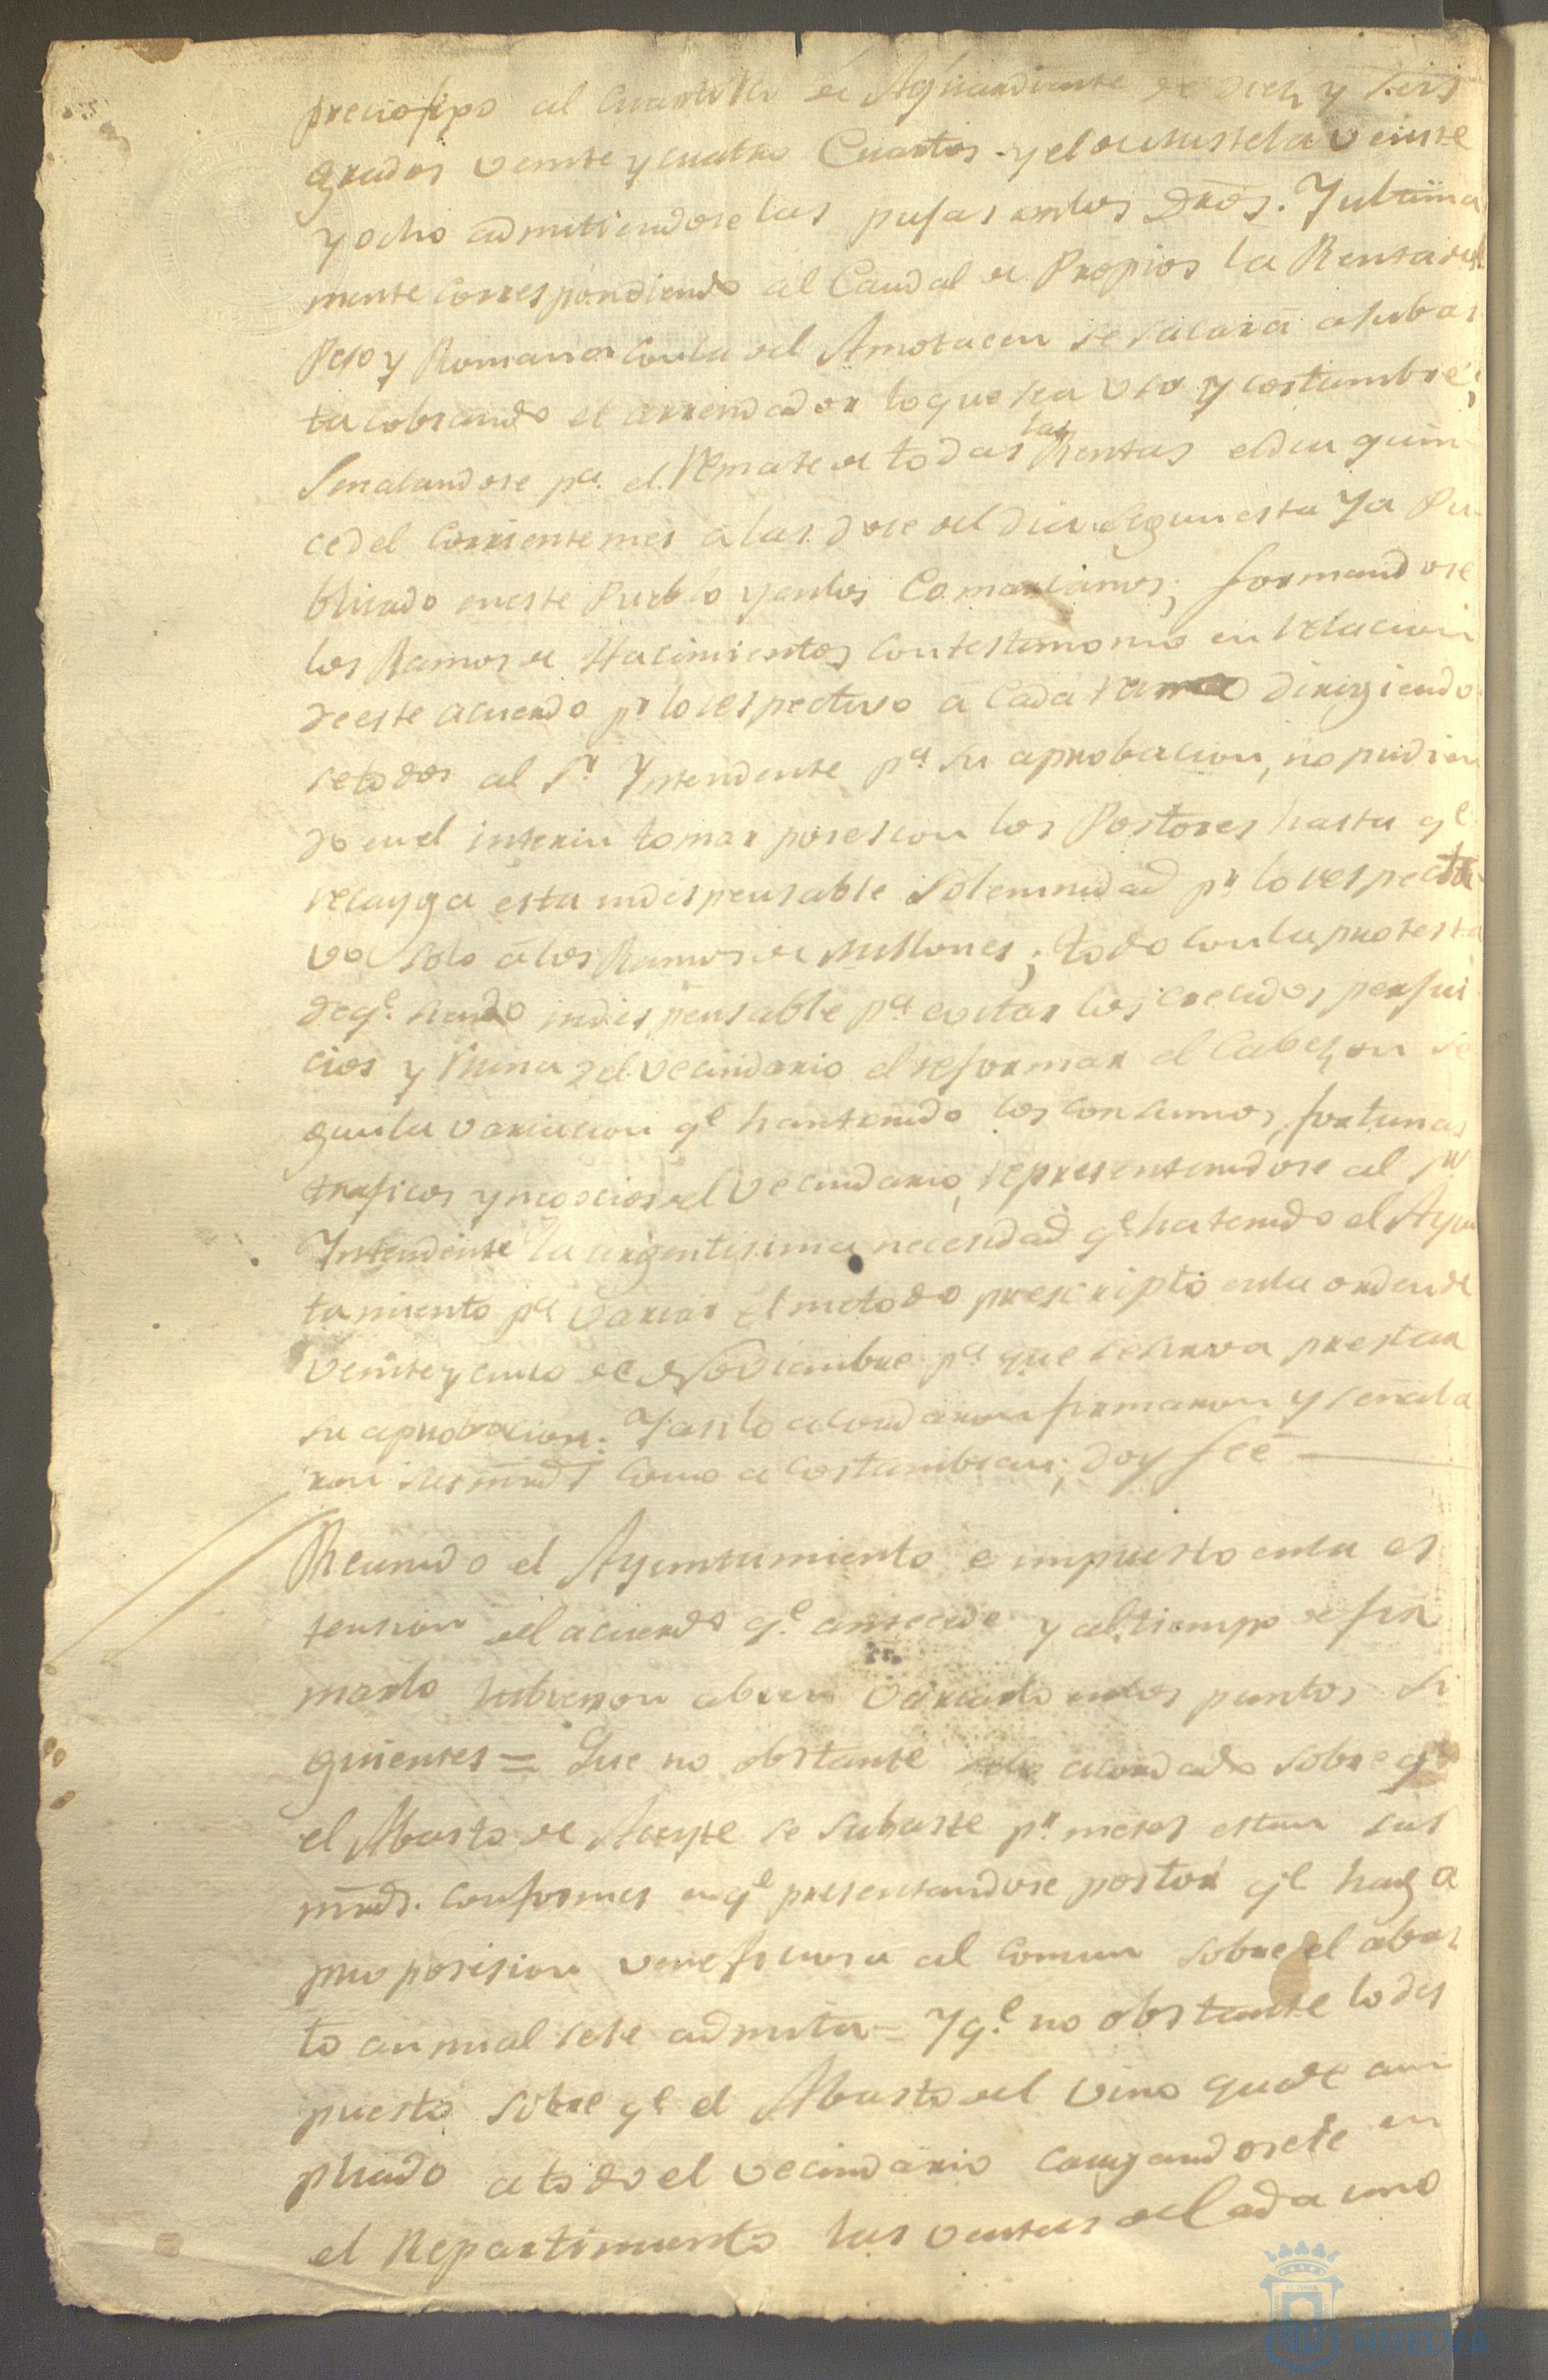 preciofixo al cuartillo de Aguardiente de diez y seis
grados veinte y quatro Cuartos y el de Mistela veinte
y ocho admitiendose las pujas en los Dros. Y ultima
mente correspondiendo al Caudal de Propios la Renta del
Peso y Romana con la del Amotacen se sacará a subas
ta cobrando el arrendador lo que sea uso y costumbre;
Señalandose pa. el Remate de todas las Rentas el dia quin
ce del corriente mes a las dose del dia segun esta Ya Pu
blicado en este Pueblo y en los Comarcanos; formandose
los Ramos de Hacimientos con testimonio en relacion
de este acuerdo pr lo respectivo a cada ramo dirigiendo
se todos al Sr Yntendente pa. su aprobacion, no pudien
do en el interin tomar posescion los Postores hasta qe
recayga esta indespensable solemnidad pr lo respecti
vo solo á los Ramos de Millones; todo con la protesta
de qe. siendo indispensable pa evitar los crecidos perjui
cios y Ruina del vecindario el reformar el Cabezon se
gun la variacion qe han tenido los consumos, fortunas
traficos y negocios del vecindario, representandose al Sr
Yntendente la urgentisima necesidad qe ha tenido el Ayun
tamiento pa variar el metodo prescripto en la orden de
veinte y cinco de Noviembre pa que se sirva prestar
su aprobacion: Y asi lo acordaron firmaron y señala
ron sus mrds como acostumbran; doy feé
Reunido el Ayuntamiento e impuesto en la es
tension del acuerdo qe. antecede y al tiempo de fir
marlo hubieron aber variado en los puntos si
guientes = Que no obstante acordado sobre qe
el Abasto de Aceyte se subaste pr. meses estan sus
mrds. conformes en qe presentandose postor qe haga
proposision veneficiosa al comun sobre el abas
to annual se le admita = Y qe. no obstante lo dis
puesto sobre qe el Abasto del vino quede am
pliado a todo el vecindario cargandosele en
el Repartimiento las ventas de Cada uno
HUELVA